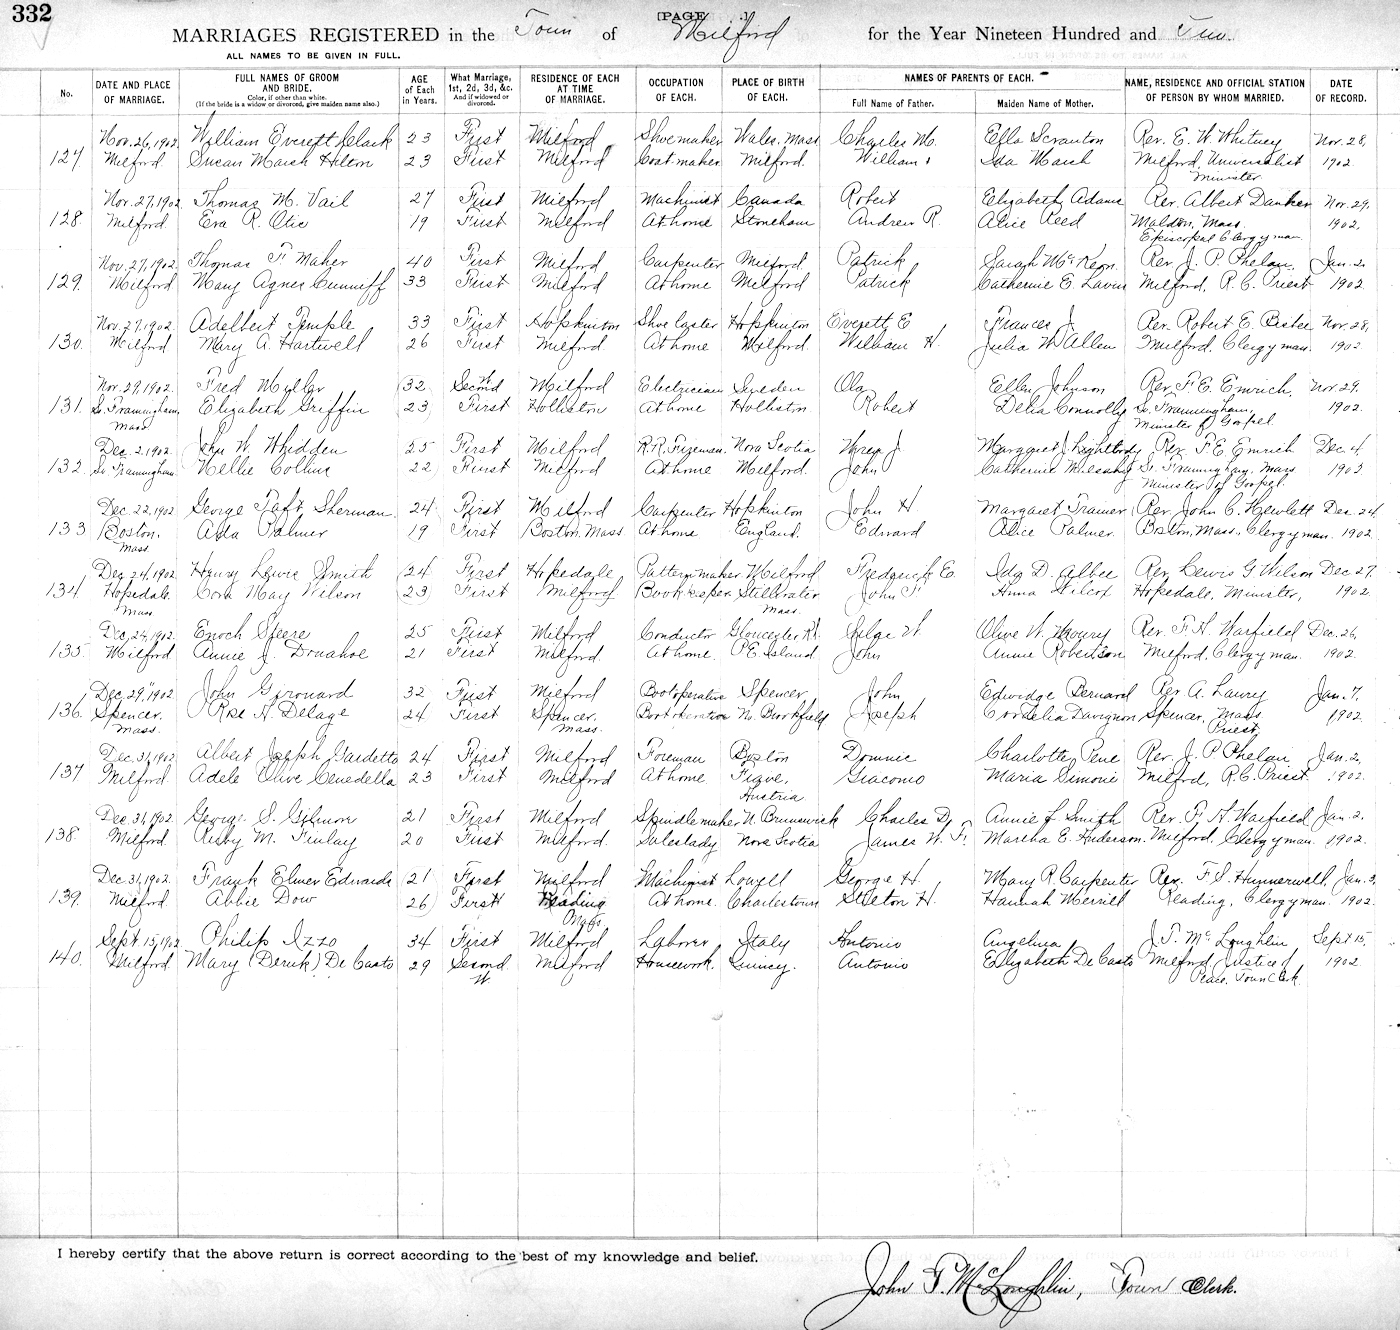 332
[PAGE .]
MARRIAGES REGISTERED in the Town of Milford for the Year Nineteen Hundred and Two.
ALL NAMES TO BE GIVEN IN FULL.
No. DATE AND PLACE OF MARRIAGE. FULL NAMES OF GROOM AND BRIDE. Color, if other than white. (If the bride is a widow or divorced, give maiden name also.) AGE of Each in Years. What Marriage, 1st, 2d, 3d, &c. And if widowed or divorced. RESIDENCE OF EACH AT TIME OF MARRIAGE. OCCUPATION OF EACH. PLACE OF BIRTH OF EACH. NAMES OF PARENTS OF EACH. Full Name of Father. Maiden Name of Mother. NAME, RESIDENCE AND OFFICIAL STATION OF PERSON BY WHOM MARRIED. DATE OF RECORD.
Nov. 26, 1902 William Everett Clark 23 First Milford Shoemaker Wales, Mass Charles M. Ella Scranton Rev. E. W. Whitney Nov. 28,
127 Milford. Susan Marsh Hilton 23 First Milford Coat maker Milford. William Ida Marsh Milford, Universalist 1902.
Minister.
Nov. 27, 1902 Thomas M. Vail 27 First Milford Machinist Canada Robert Elizabeth Adams Rev. Albert Danker Nov. 29,
128. Milford. Eva R. Otis 19 First Milford At home Stoneham Andrew R. Alice Reed Maldon, Mass. 1902.
Episcopal Clergyman.
Nov. 27, 1902 Thomas F. Maher 40 First Milford Carpenter Milford Patrick Sarah McKeon. Rev. J. P. Phelan. Jan. 2.
129. Milford Mary Agnes Cunniff 33 First Milford At home Milford Patrick Catherine E. Lavin Milford, R. C. Priest 1902.
Nov. 27, 1902. Adelbert Temple 33 First Hopkinton Shoe laster Hopkinton Everett E Frances J. Rev. Robert E. Bisbee Nov. 28,
130. Milford Mary A. Hartwell 26 First Milford. At home Milford. William H. Julia W Allen Milford, Clergyman. 1902
Nov. 29, 1902. Fred Myller 32 Second Milford Electrician Sweden Ola Ellen Johnson Rev. F. E. Emrich, Nov 29.
131. So. Framingham, Elizabeth Griffin 23 First Holliston At home Holliston Robert Delia Connolly So. Framingham, 1902.
Mass. Minister of Gospel.
Dec. 2, 1902. John W. Whidden 25 First Milford R.R. Fireman. Nova Scotia J. Margaret J. Lightbody Rev. F. E. Emrich Dec. 4
132. So. Framingham. Nellie Collins 22 First Milford At home Milford. John Catherine So. Framingham, Mass 1902
Minister of Gospel.
Dec. 22, 1902 George Taft Sherman 24 First Milford Carpenter Hopkinton John H. Margaret Trainer Rev. John C. Hewlett Dec. 24.
133 Boston. Ada Palmer 19 First Boston. Mass At home England. Edward Alice Palmer. Boston, Mass., Clergyman. 1902.
Mass.
Dec 24, 1902 Henry Lewis Smith 24 First Hopedale Pattern maker Milford Frederick E. Ida D. Albee Rev. Lewis G. Wilson Dec 27.
134 Hopedale Cora May Wilson 23 First Milford Bookkeeper Stillwater John F Anna Wilcox Hopedale, Minister, 1902.
Mass Mass.
Dec. 24, 1902. Enoch Steere 25 First Milford Conductor Gloucester R.I. W. Olive W. Mowry Rev. F. A. Warfield Dec. 26,
135. Milford Annie J. Donahoe 21 First Milford. At home. P.E. Island. John Annie Robertson Milford, Clergyman. 1902.
Dec. 29, 1902 John Girouard 32 First Milford Boot operative Spencer, John Edwidge Bernard Rev A. Lamy Jan. 7.
136. Spencer. Rose A. Delage 24 First Spencer. Boot operative No. Brookfield Joseph Cordelia Davignon Spencer, Mass 1902
Mass. Mass. Priest
Dec. 31, 1902 Albert Joseph Gardetto 24 First Milford Foreman Boston Dominic Charlotte Pene Rev. J. P. Phelan, Jan. 2,
137 Milford. Adele Olive Cenedella 23 First Milford At home. Fiave, Giacomo Maria Simoni Milford, R.C. Priest. 1902.
Austria
Dec. 31, 1902. George S. Gilmor 21 First Milford Spindle maker N. Brunswick Charles D. Annie L Smith Rev. F. A. Warfield Jan. 2.
138. Milford. Ruby M. Finlay 20 First Milford. Saleslady Nova Scotia James W. F. Martha E. Anderson. Milford, Clergyman. 1902.
Dec. 31, 1902. Frank Elmer Edwards 21 First Milford Machinist Lowell George H. Mary R. Carpenter Rev. F. S. Hunnewell, Jan. 3,
139. Milford. Abbie Dow 26 First Reading At home. Charlestown Stilston H. Hannah Merrill Reading, Clergyman. 1902.
Mass
Sept. 15, 1902 Philip Izzo 34 First Milford Laborer Italy Antonio Angelina J. T. McLoughlin Sept 15,
140. Milford. Mary (Deruk) De Casto 29 Second. Milford Housework. Quincy. Antonio Elizabeth De Casto Milford, Justice of 1902.
W. Peace. Town Clerk.
I hereby certify that the above return is correct according to the best of my knowledge and belief.
John T. McLoughlin, Town Clerk.